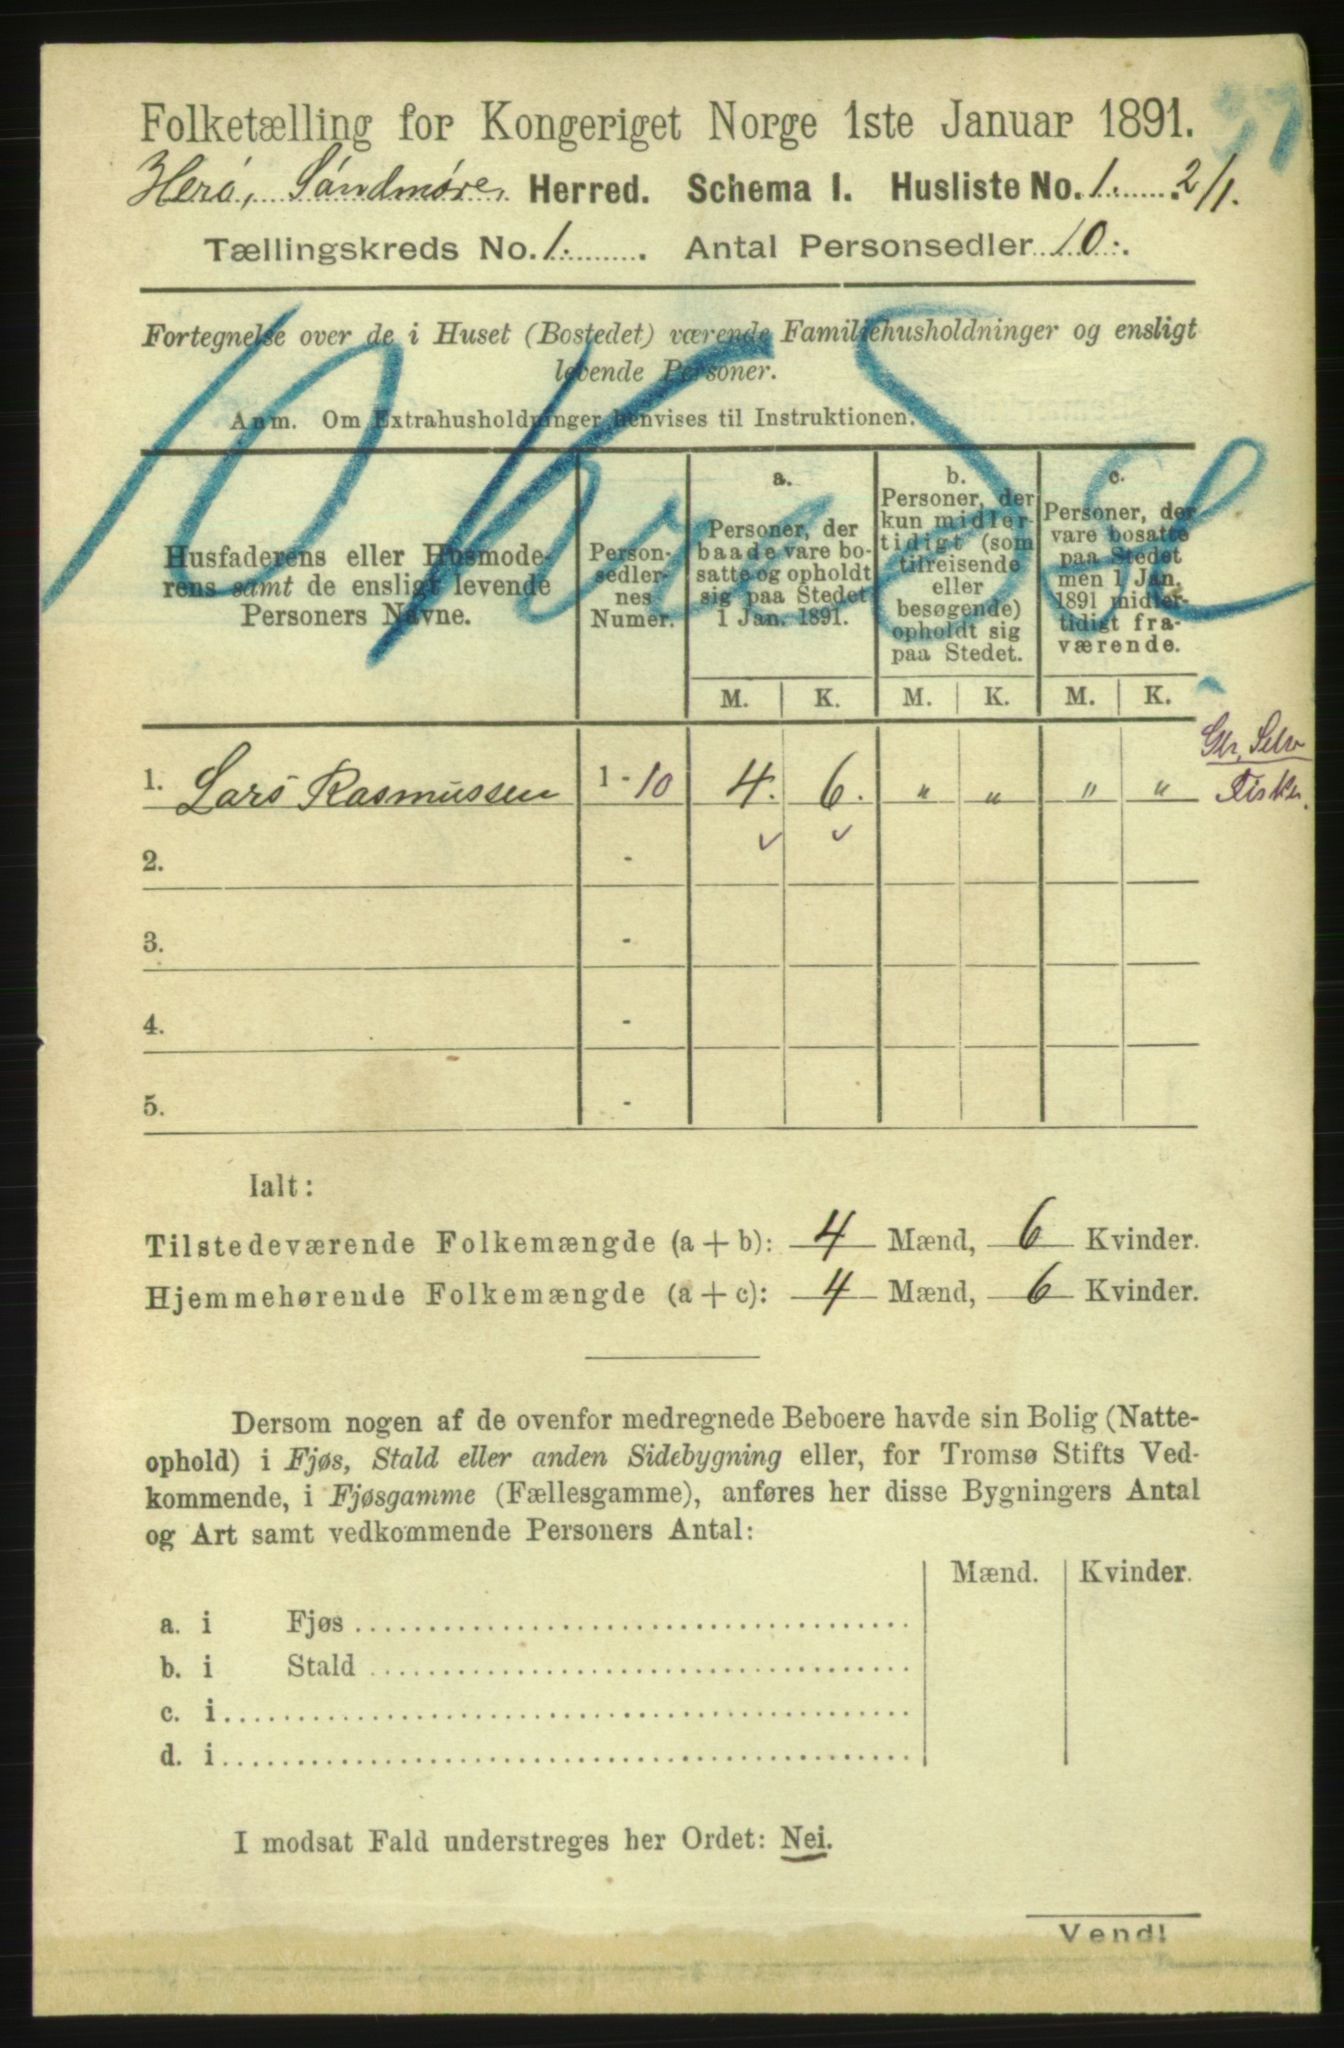 Folketælling for Kongeriget Norge 1ste Januar 1891.
Herö, Söndmøre, Herred. Schema I. Husliste No. 1. 2/1.
Tællingskreds No. 1. Antal Personsedler 10.
Fortegnelse over de i Huset (Bostedet) værende Familiehusholdninger og ensligt
levende Personer.
Anm. Om Extrahusholdninger henvises til Instruktionen.
Husfaderens eller Husmode-
rens samt de ensligt levende
Personers Navne.
Person-
sedler-
nes
Numer.
a.
Personer, der
baade vare bo-
satte og opholdt
sig paa Stedet
1 Jan. 1891.
b.
Personer, der
kun midler-
tidigt (som
tilreisende
eller
besøgende)
opholdt sig
paa Stedet.
c.
Personer, der
vare bosatte
paa Stedet
men 1 Jan.
1891 midler-
tidigt fra-
værende.
M. K. M. K. M. K.
1. Lars Rasmussen 1 - 10 4. 6. " " " "
Gbr, Selv
Fisker.
2. -
3. -
4. -
5. -
Ialt:
Tilstedeværende Folkemængde (a + b): 4 Mænd, 6 Kvinder.
Hjemmehørende Folkemængde (a + c): 4 Mænd, 6 Kvinder.
Dersom nogen af de ovenfor medregnede Beboere havde sin Bolig (Natte-
ophold) i Fjøs, Stald eller anden Sidebygning eller, for Tromsø Stifts Ved-
kommende, i Fjøsgamme (Fællesgamme), anføres her disse Bygningers Antal
og Art samt vedkommende Personers Antal:
Mænd. Kvinder.
a. i Fjøs
b. i Stald
c. i
d. i
I modsat Fald understreges her Ordet: Nei.
Vend!